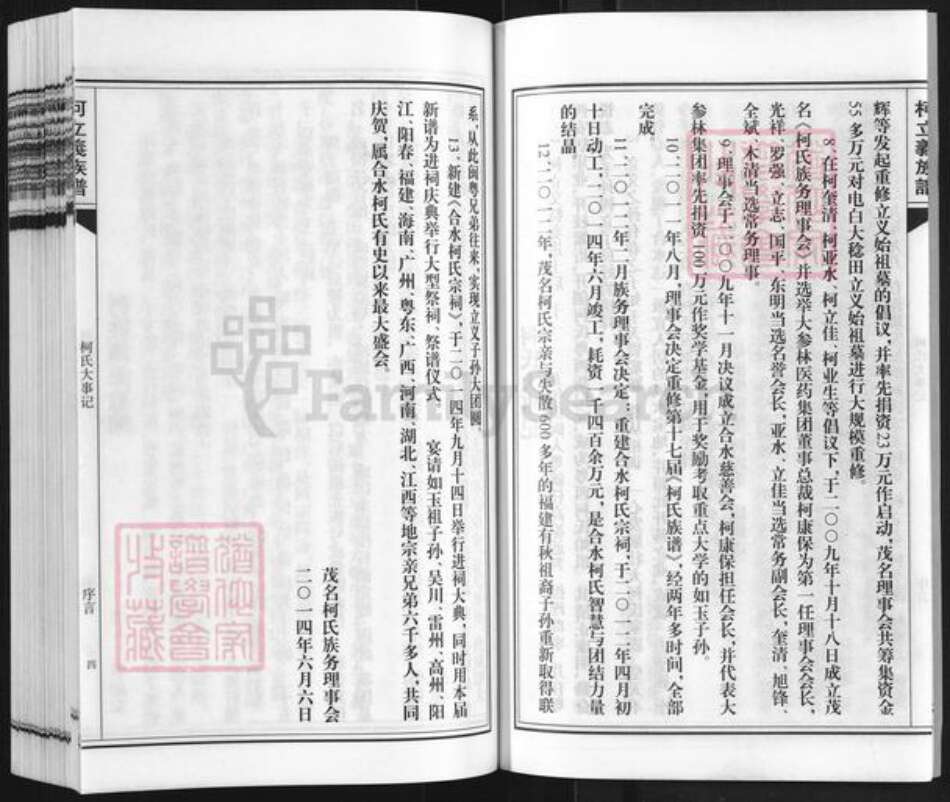 柯立義族譜
辉等发起重修立义始祖墓的倡议，并率先捐资23万元作启动，茂名理事会共筹集资金
55多万元对电白大稔田立义始祖墓进行大规模重修。
8、在柯奎清、柯亚水、柯立佳、柯业生等倡议下，于二〇〇九年十月十八日成立茂
名《柯氏族务理事会》并选举大参林医药集团董事总裁柯康保为第一任理事会会长，
光祥、罗强、立志、国平、东明当选名誉会长，亚水、立佳当选常务副会长，奎清、旭锋、
全斌、木清当选常务理事。
9、理事会于二〇〇九年十一月决议成立合水慈善会，柯康保担任会长，并代表大
参林集团率先捐资100万元作奖学基金，用于奖励考取重点大学的如玉子孙。
10、二〇一一年八月，理事会决定重修第十七届《柯氏族谱》，经两年多时间，全部
完成
11、二〇一二年二月族务理事会决定：重建合水柯氏宗祠、于二〇一二年四月初
十日动工，二〇一四年六月竣工，耗资一千四百余万元，是合水柯氏智慧与团结力量
的结晶
12、二〇一二年，茂名柯氏宗亲与失散600多年的福建有秋祖裔子孙重新取得联
系，从此闽粤兄弟往来，实现立义子孙大团圆
13、新建《合水柯氏宗祠》，于二〇一四年九月十四日举行进祠大典，同时用本届
新谱为进祠庆典举行大型祭祠、祭谱仪式 宴请如玉祖子孙、吴川、雷州、高州、阳
江、阳春、福建、海南、广州、粤东、广西、河南、湖北、江西等地宗亲兄弟六千多人，共同
庆贺，属合水柯氏有史以来最大盛会。
茂名柯氏族务理事会
二〇一四年六月六日
柯立義族譜
柯氏大事记
序言
四
FamilySearch
譜學會
特藏